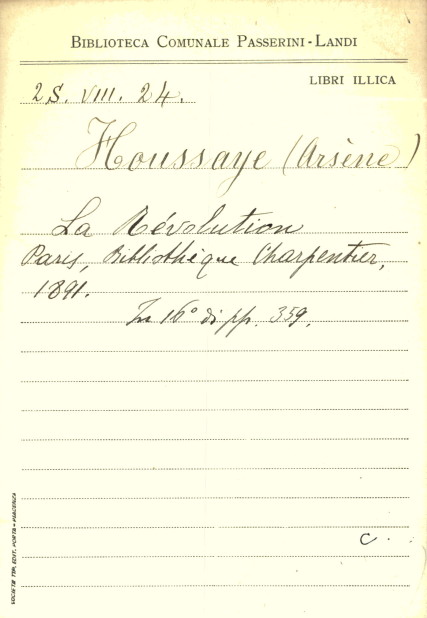 BIBLIOTECA COMUNALE PASSERINI-LANDI
LIBRI ILLICA
2S. VIII. 24.
Houssaye (Arsène)
La Révolution
Paris, Bibliothèque Charpentier,
1891.
In 16° di pp. 359.
C.
SOCIETÀ TIP. EDIT. PORTA - PIACENZA